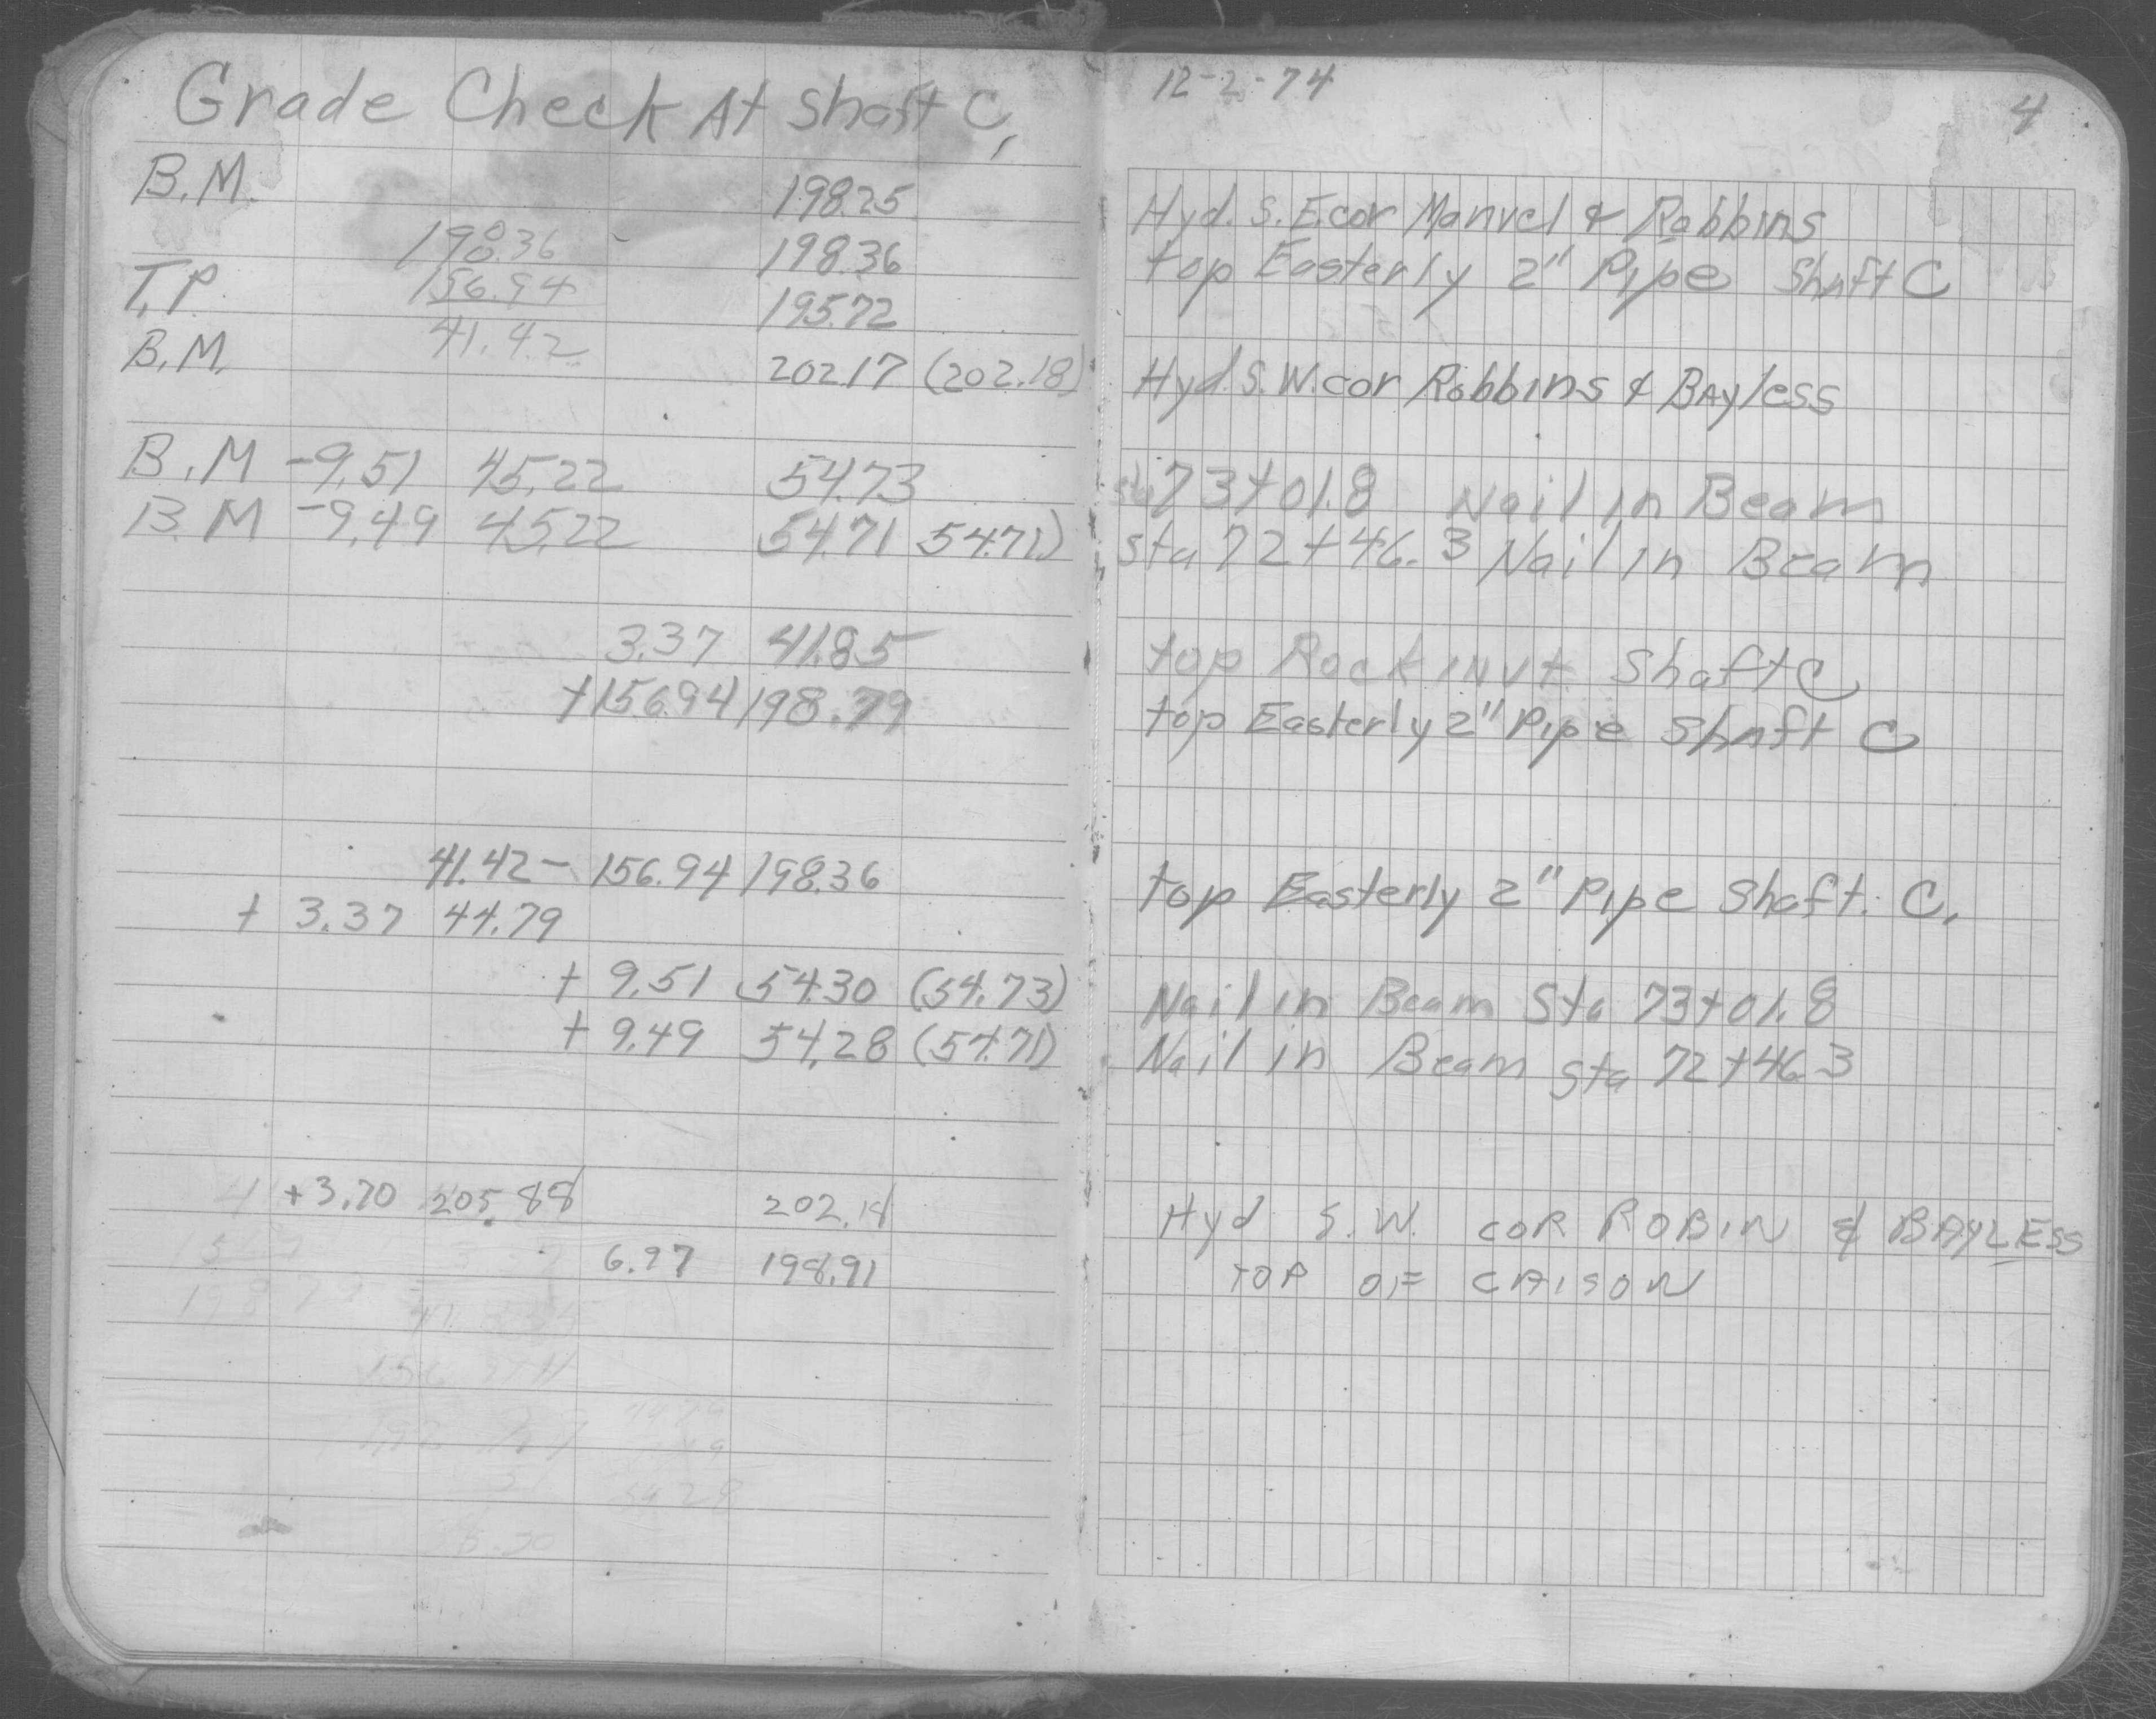 Grade Check At Shaft C,
B.M. 198.25
198.36 198.36
T.P. 156.94 195.72
41.42
B.M. 202.17 (202.18)
B.M -9.51 45.22 54.73
B.M -9.49 45.22 54.71 54.71)
3.37 41.85
+156.94 198.79
41.42 - 156.94 198.36
+ 3.37 44.79
+ 9.51 54.30 (54.73)
+ 9.49 54.28 (54.71)
+3.70 205.88 202.18
6.97 198.91
12-2-74
4
Hyd. S. E. cor Manvel & Robbins
top Easterly 2" Pipe Shaft C
Hyd. S. W. cor Robbins & Bayless
sta 73+01.8 Nail in Beam
sta 72+46.3 Nail in Beam
top Rock invt. Shaft C
top Easterly 2" Pipe Shaft C
top Easterly 2" Pipe Shaft. C.
Nail in Beam Sta 73+01.8
Nail in Beam Sta 72+46.3
Hyd S.W. COR ROBIN & BAYLESS
TOP OF CAISON